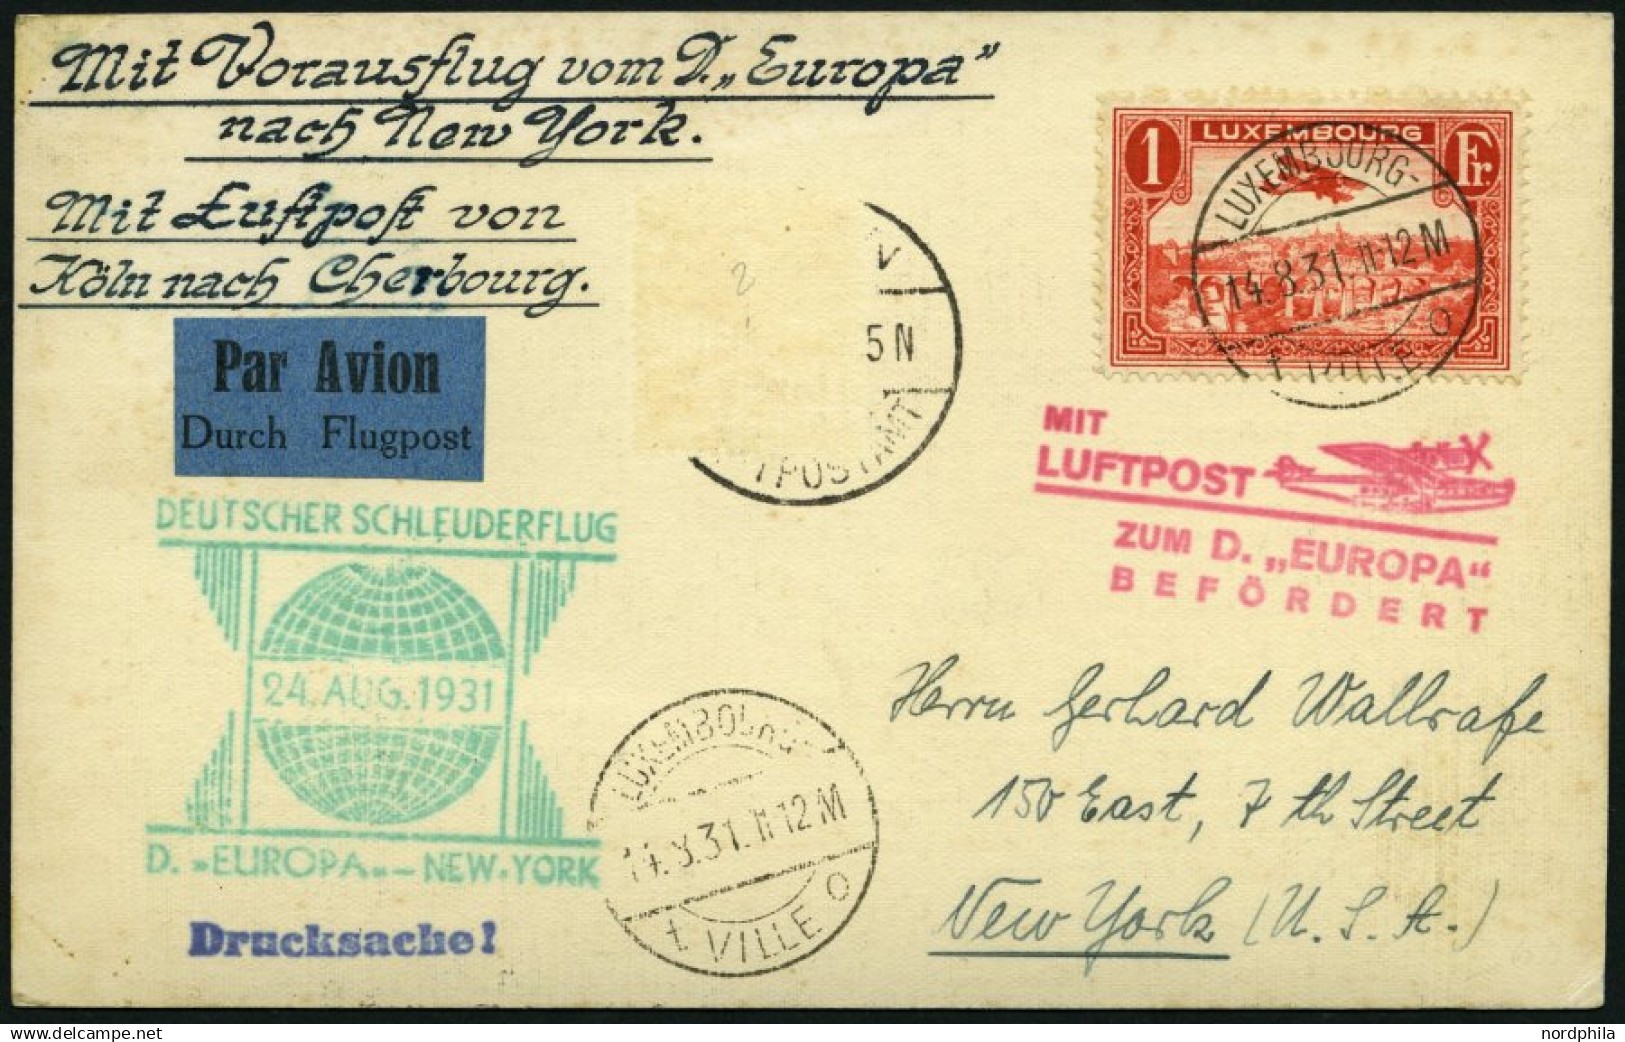 Mit Vorausflug vom D. „Europa”
nach New York.
Mit Luftpost von
Köln nach Cherbourg.
Par Avion
Durch Flugpost
5 N
LUXEMBOURG
1 Fr.
LUXEMBOURG-
14.8.31. 11-12 M
VILLE
MIT
LUFTPOST
ZUM D. „EUROPA“
BEFÖRDERT
DEUTSCHER SCHLEUDERFLUG
24. AUG. 1931
D. »EUROPA«-NEW-YORK
Drucksache!
LUXEMBOURG-
14.8.31. 11-12 M
VILLE
Herrn Gerhard Wallrafe
150 East, 7 th Street
New York (U. S. A.)
nordphila